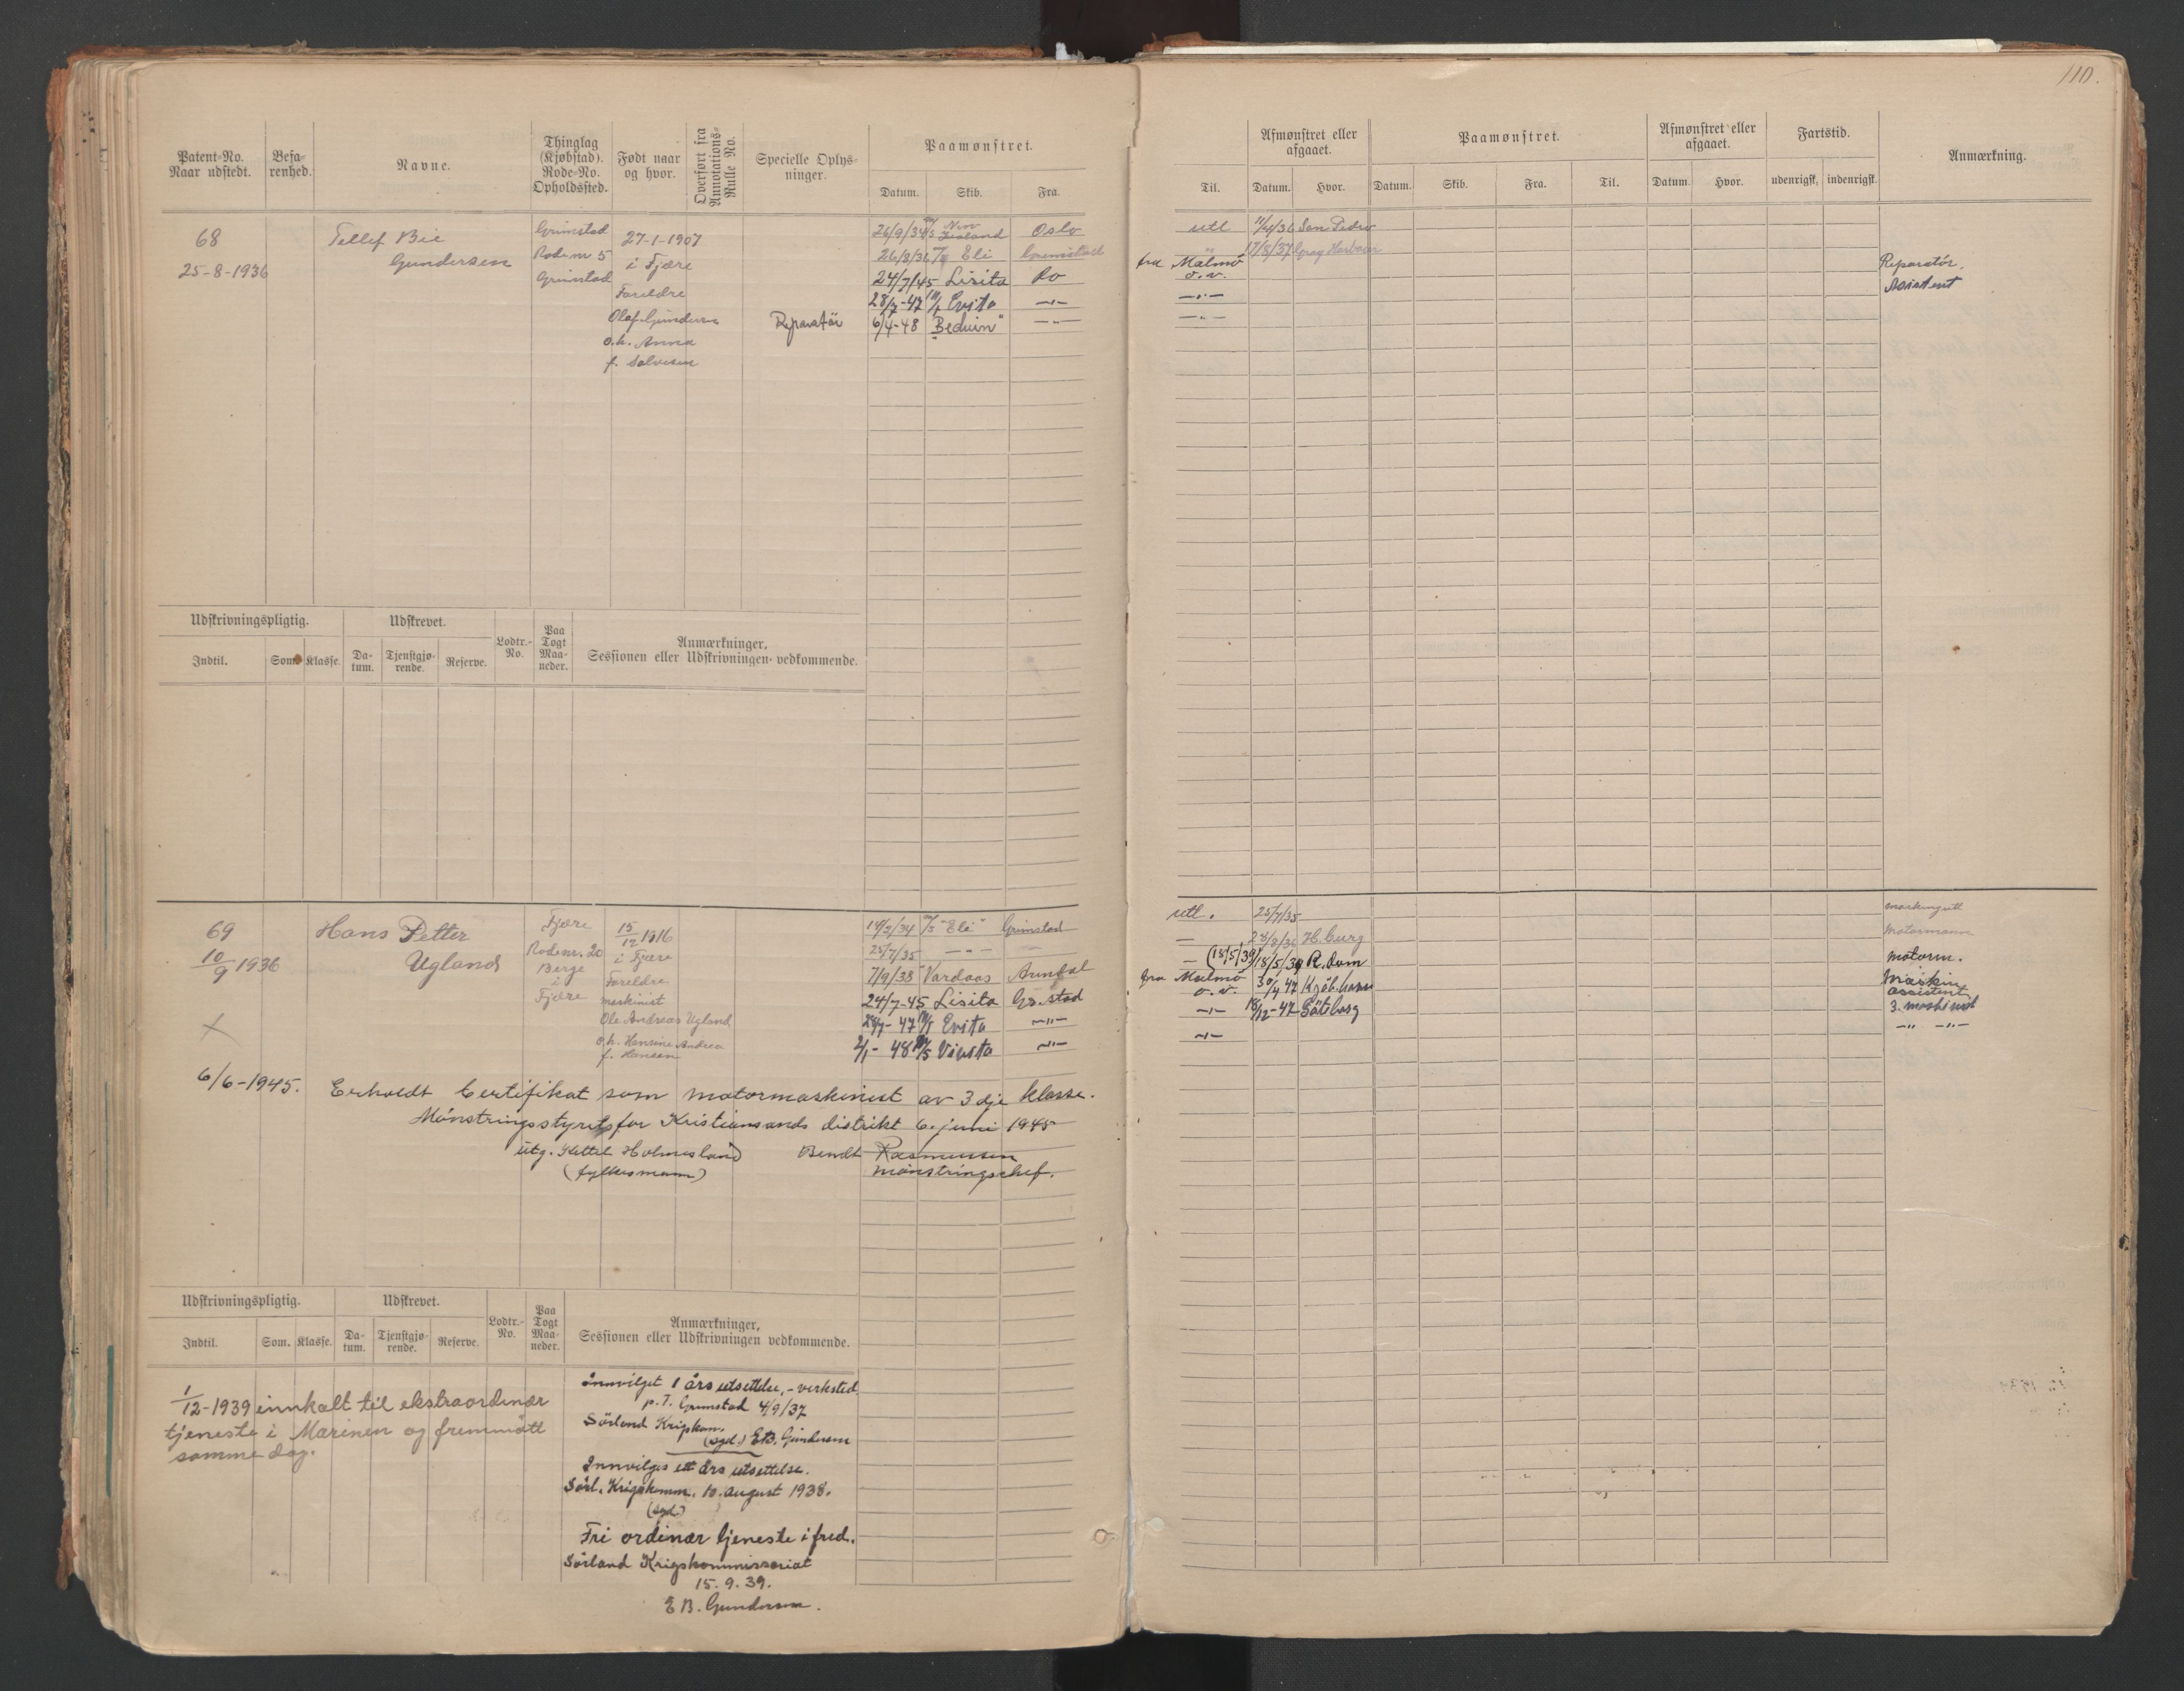 110.
Patent-No. Naar udstedt.
Befarenhed.
Navne.
Thinglag (Kjøbstad). Rode-No. Opholdssted.
Født naar og hvor.
Overført fra Annotations-Rulle No.
Specielle Oplysninger.
Paamønstret.
Datum. Skib. Fra.
Til.
Afmønstret eller afgaaet.
Datum. Hvor.
Paamønstret.
Datum. Skib. Fra. Til.
Afmønstret eller afgaaet.
Datum. Hvor.
Fartstid.
udenrigsk. indenrigsk.
Anmærkning.
68
25-8-1936
Tellef Bie
Gundersen
Grimstad
Rode nr 5
Grimstad
27-1-1907
i Fjære
Foreldre
Olaf Gundersen
o.h. Anna
f. Salvesen
Reparatör
26/9/34 M/S New Zealand Oslo utl 11/4/36 San Pedro
26/8/36 Eli Grimstad " 17/8/37 Gray Harbour
24/7/45 Lisita do fra Malmö o.v. Reparatör.
28/7-47 Evita -"- -"- Assistent
6/4-48 "Beduin" -"- -"-
Udskrivningspligtig.
Indtil. Som. Klasse.
Udskrevet.
Datum. Tjenstgjørende. Reserve.
Lodtr.-No.
Paa Togt Maaneder.
Anmærkninger,
Sessionen eller Udskrivningen vedkommende.
69
10/9 1936
Hans Petter
Ugland
Fjære
Rodenr. 20
Berge
i
Fjære
15/12 1916
i Fjære
Foreldre
maskinist
Ole Andreas Ugland
o.h. Hansine Andrea
f. Hansen
14/2/34 M/S "Eli" Grimstad utl. 25/7/35 maskingutt
25/7/35 -"- — — 23/8/36 H.burg Motormann
7/9/38 Vardaas Arendal — (18/5/39) 18/5/39 R.dam motorm.
24/7-45 Lisita Gr.stad fra Malmö o.v. 30/4 47 Kjöb.havn Maskin assistent
47 Evita -"- -"- 18/12-47 Göteborg 3. maskinist
2/1-48 M/S Vivita -"- -"- -"- -"-
6/6-1945. Erholdt Certifikat som motormaskinist av 3dje klasse.
Mönstringsstyret for Kristiansands distrikt 6. juni 1945
utg. Kittel Holmesland Bendt Rasmussen
(fylkesmann) mönstringschef.
Udskrivningspligtig.
Indtil. Som. Klasse.
Udskrevet.
Datum. Tjenstgjørende. Reserve.
Lodtr.-No.
Paa Togt Maaneder.
Anmærkninger,
Sessionen eller Udskrivningen vedkommende.
1/12-1939 innkalt til ekstraordinær
tjeneste i Marinen og fremmött
samme dag.
Innvilget 1 års utsettelse, - verksted
p.T. Grimstad 4/9/37
Sörland Krigskom.
(sgd.) E.B. Gundersen
Innvilges ett års utsettelse.
Sörl. Krigskomm. 10. august 1938.
(sgd)
Fri ordinær tjeneste i fred.
Sörland Krigskommissariat
15. 9. 39.
E B. Gundersen.